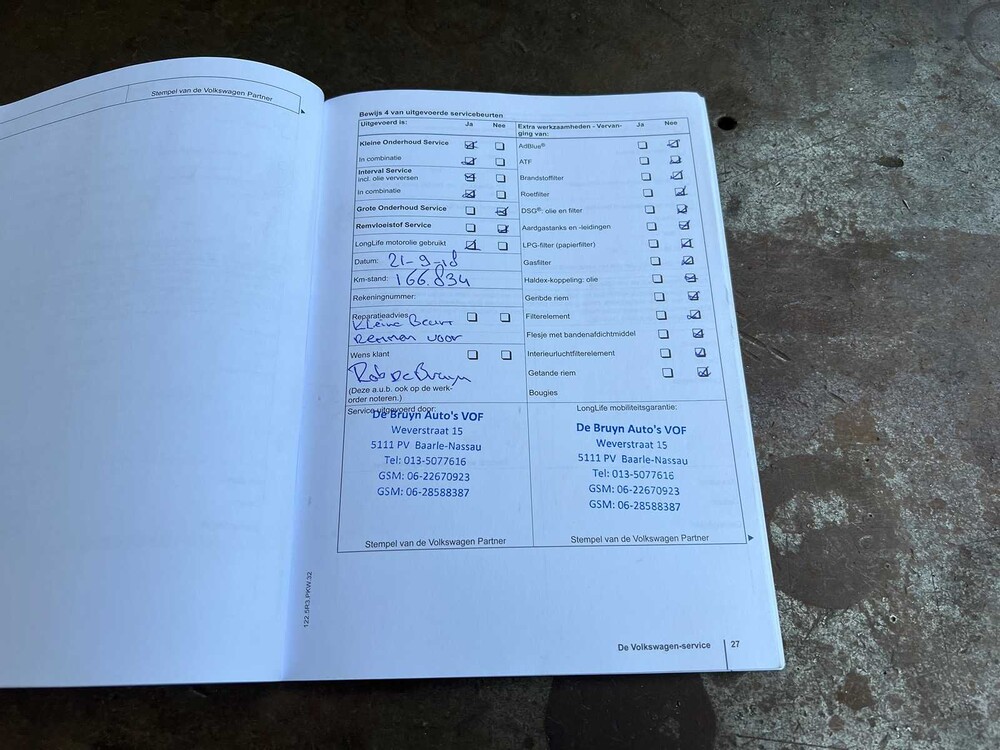 Stempel van de Volkswagen Partner
Bewijs 4 van uitgevoerde servicebeurten
Uitgevoerd is: Ja Nee
Kleine Onderhoud Service
In combinatie
Interval Service
incl. olie verversen
In combinatie
Grote Onderhoud Service
Remvloeistof Service
LongLife motorolie gebruikt
Datum: 21-9-18
Km-stand: 166.834
Rekeningnummer:
Reparatieadvies
Kleine Beurt
Remmen voor
Wens klant
Rob de Bruyn
(Deze a.u.b. ook op de werk-
order noteren.)
Extra werkzaamheden - Vervan- Ja Nee
ging van:
AdBlue®
ATF
Brandstoffilter
Roetfilter
DSG®: olie en filter
Aardgastanks en -leidingen
LPG-filter (papierfilter)
Gasfilter
Haldex-koppeling: olie
Geribde riem
Filterelement
Flesje met bandenafdichtmiddel
Interieurluchtfilterelement
Getande riem
Bougies
Service uitgevoerd door:
De Bruyn Auto's VOF
Weverstraat 15
5111 PV Baarle-Nassau
Tel: 013-5077616
GSM: 06-22670923
GSM: 06-28588387
Stempel van de Volkswagen Partner
LongLife mobiliteitsgarantie:
De Bruyn Auto's VOF
Weverstraat 15
5111 PV Baarle-Nassau
Tel: 013-5077616
GSM: 06-22670923
GSM: 06-28588387
Stempel van de Volkswagen Partner
122.5R3.PKW.32
De Volkswagen-service 27